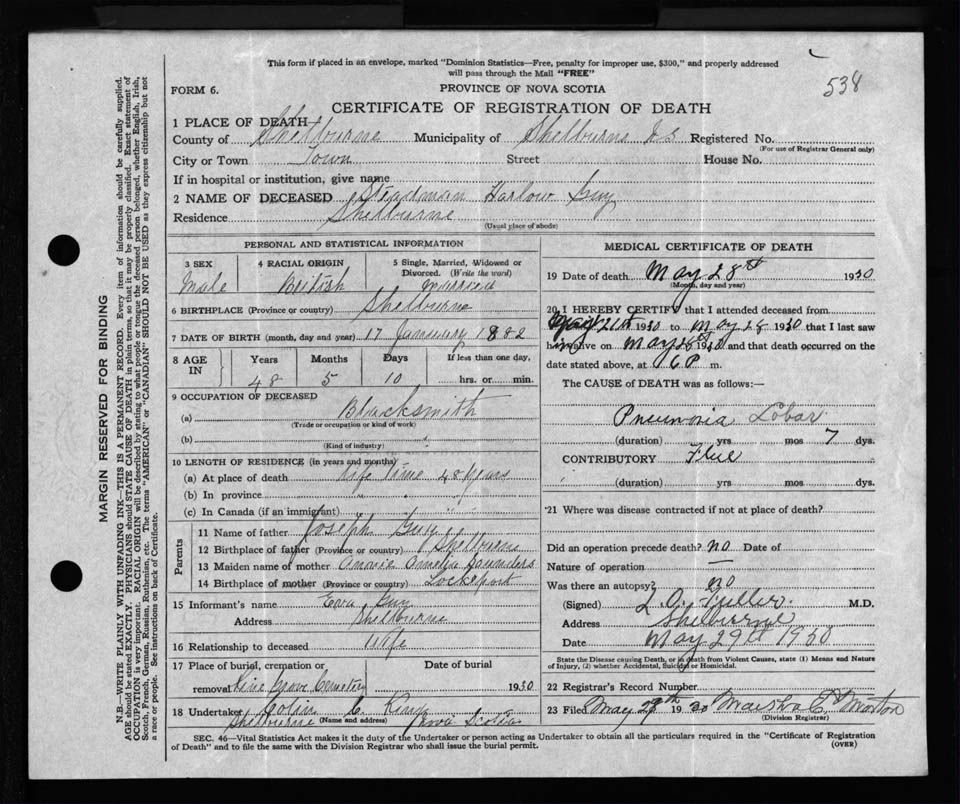 This form if placed in an envelope, marked "Dominion Statistics—Free, penalty for improper use, $300," and properly addressed
will pass through the Mail "FREE"
538
FORM 6.
PROVINCE OF NOVA SCOTIA
CERTIFICATE OF REGISTRATION OF DEATH
1 PLACE OF DEATH
County of Shelburne Municipality of Shelburne Registered No.
(For use of Registrar General only)
City or Town Town Street House No.
If in hospital or institution, give name
2 NAME OF DECEASED Steadman Harlow Guy
Residence Shelburne
(Usual place of abode)
PERSONAL AND STATISTICAL INFORMATION
3 SEX 4 RACIAL ORIGIN 5 Single, Married, Widowed or
Divorced. (Write the word)
Male British Married
6 BIRTHPLACE (Province or country) Shelburne
7 DATE OF BIRTH (month, day and year) 17 January 1882
8 AGE IN Years Months Days If less than one day,
48 5 10 hrs. or min.
9 OCCUPATION OF DECEASED
(a) Blacksmith
(Trade or occupation or kind of work)
(b)
(Kind of industry)
10 LENGTH OF RESIDENCE (in years and months)
(a) At place of death Life Time 48 years
(b) In province
(c) In Canada (if an immigrant)
Parents
11 Name of father Joseph Guy
12 Birthplace of father (Province or country) Shelburne
13 Maiden name of mother Annie Amelia Saunders
14 Birthplace of mother (Province or country) Lockeport
15 Informant's name Eva Guy
Address Shelburne
16 Relationship to deceased Wife
17 Place of burial, cremation or Date of burial
removal Pine Grove Cemetery 1930
18 Undertaker Colin C. King
Shelburne (Name and address) Nova Scotia
MEDICAL CERTIFICATE OF DEATH
19 Date of death May 28th 1930
(Month, day and year)
20 I HEREBY CERTIFY that I attended deceased from
21st 1930 to May 28 1930 that I last saw
h alive on May 28th 1930 and that death occurred on the
date stated above, at 6 P m.
The CAUSE of DEATH was as follows:
Pneumonia Lobar
(duration) yrs mos 7 dys.
CONTRIBUTORY Flue
(duration) yrs mos dys.
21 Where was disease contracted if not at place of death?
Did an operation precede death? no Date of
Nature of operation —
Was there an autopsy? no
(Signed) L. O. Fuller. M.D.
Address Shelburne
Date May 29th 1930
State the Disease causing Death, or in death from Violent Causes, state (1) Means and Nature
of Injury, (2) whether Accidental, Suicidal or Homicidal.
22 Registrar's Record Number
23 Filed May 29th 1930 Morton
(Division Registrar)
SEC. 46—Vital Statistics Act makes it the duty of the Undertaker or person acting as Undertaker to obtain all the particulars required in the "Certificate of Registration
of Death" and to file the same with the Division Registrar who shall issue the burial permit.
(OVER)
MARGIN RESERVED FOR BINDING
N.B—WRITE PLAINLY WITH UNFADING INK—THIS IS A PERMANENT RECORD. Every item of information should be carefully supplied.
AGE should be stated EXACTLY. PHYSICIANS should STATE CAUSE OF DEATH in plain terms, so that it may be properly classified. Exact statement of
OCCUPATION is very important. RACIAL ORIGIN will be described by stating to what people or tongue the deceased person belonged, whether English, Irish,
Scotch, French, German, Russian, Ruthenian, etc. The terms "AMERICAN" or "CANADIAN" SHOULD NOT BE USED as they express citizenship but not
a race or people. See instructions on back of Certificate.